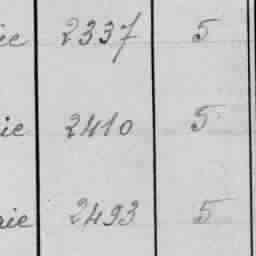 ie 2337 5
ie 2410 5
rie 2493 5